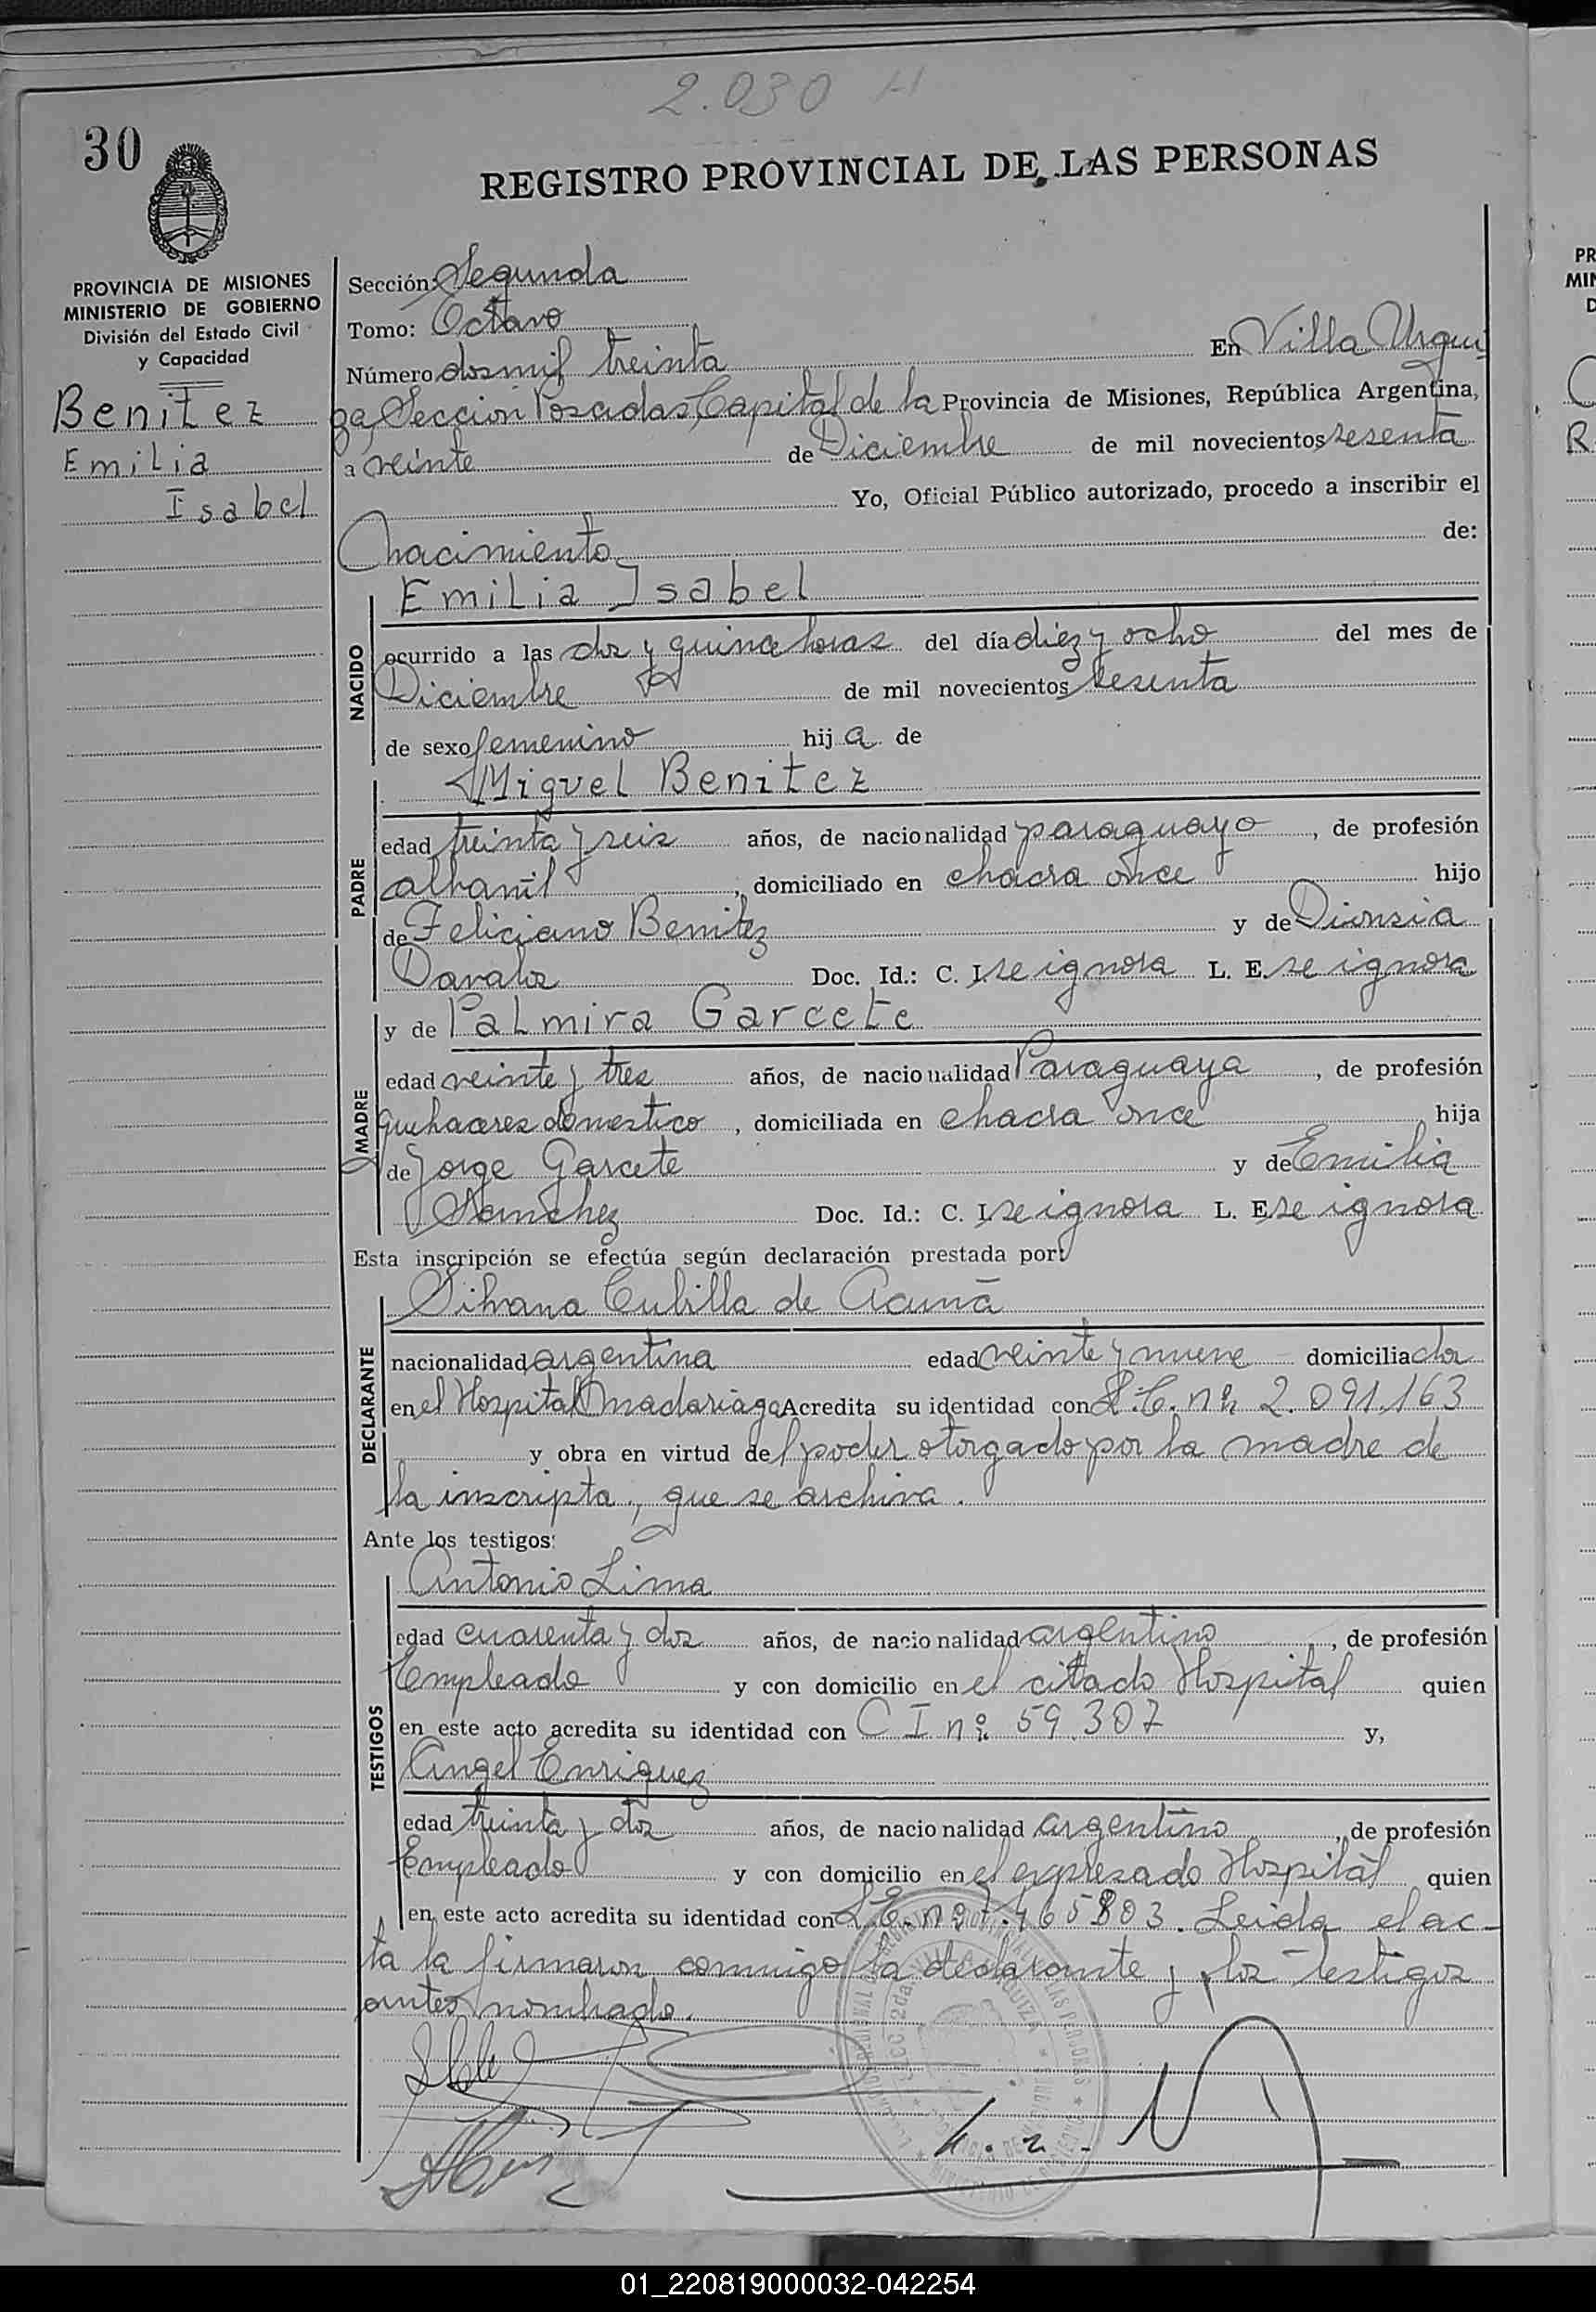 2.030 H
30
REGISTRO PROVINCIAL DE LAS PERSONAS
PROVINCIA DE MISIONES
MINISTERIO DE GOBIERNO
División del Estado Civil
y Capacidad
Benitez
Emilia
Isabel
Sección: Segunda
Tomo: Octavo
Número dos mil treinta En Villa Urqui
za, Seccion Posadas, Capital de la Provincia de Misiones, República Argentina,
a veinte de Diciembre de mil novecientos sesenta
Yo, Oficial Público autorizado, procedo a inscribir el
nacimiento de:
Emilia Isabel
NACIDO
ocurrido a las dos y quince horas del día diez y ocho del mes de
Diciembre de mil novecientos sesenta
de sexo femenino hija de
Miguel Benitez
PADRE
edad treinta y seis años, de nacionalidad paraguayo, de profesión
albañil, domiciliado en chacra once hijo
de Feliciano Benitez y de Dionsia
Davalos Doc. Id.: C. I. se ignora L. E. se ignora
y de Palmira Garcete
MADRE
edad veinte y tres años, de nacionalidad Paraguaya, de profesión
quehaceres domestico, domiciliada en chacra once hija
de Jorge Garcete y de Emilia
Sanchez Doc. Id.: C. I. se ignora L. E. se ignora
Esta inscripción se efectúa según declaración prestada por:
Silvana Cubilla de Acuña
DECLARANTE
nacionalidad argentina edad veinte y nueve domiciliados
en el Hospital Madariaga Acredita su identidad con L.C. nº 2.091.163
y obra en virtud del poder otorgado por la madre de
la inscripta, que se archiva.
Ante los testigos:
Antonio Lima
TESTIGOS
edad cuarenta y dos años, de nacionalidad argentino, de profesión
Empleado y con domicilio en el citado Hospital quien
en este acto acredita su identidad con C I nº 59.307 y,
Angel Enriquez
edad treinta y dos años, de nacionalidad argentino, de profesión
Empleado y con domicilio en el expresado Hospital quien
en este acto acredita su identidad con L.E. nº 7.465803. Leida el ac-
ta la firmaron conmigo la declarante y los testigos
antes nombrado.
01_220819000032-042254